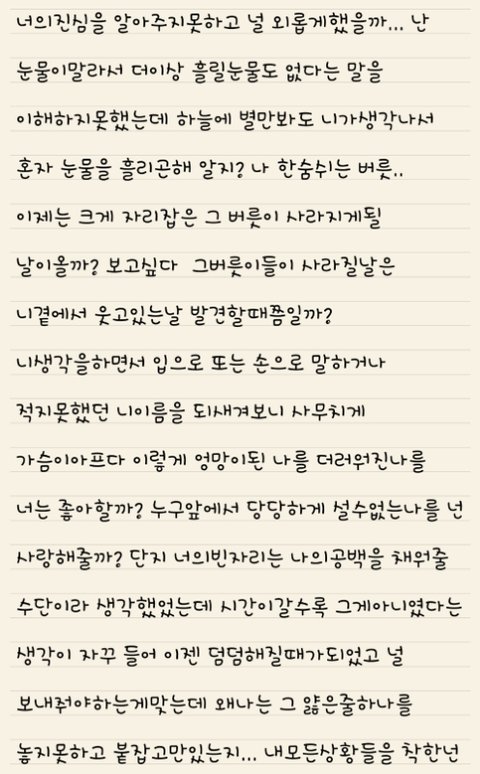 너의진심을 알아주지못하고 널 외롭게했을까... 난
눈물이말라서 더이상 흘릴눈물도 없다는 말을
이해하지못했는데 하늘에 별만봐도 니가생각나서
혼자 눈물을 흘리곤해 알지? 나 한숨쉬는 버릇..
이제는 크게 자리잡은 그 버릇이 사라지게될
날이올까? 보고싶다 그버릇이들이 사라질날은
니곁에서 웃고있는날 발견할때쯤일까?
니생각을하면서 입으로 또는 손으로 말하거나
적지못했던 니이름을 되새겨보니 사무치게
가슴이아프다 이렇게 엉망이된 나를 더러워진나를
너는 좋아할까? 누구앞에서 당당하게 설수없는나를 넌
사랑해줄까? 단지 너의빈자리는 나의공백을 채워줄
수단이라 생각했었는데 시간이갈수록 그게아니였다는
생각이 자꾸 들어 이젠 덤덤해질때가되었고 널
보내줘야하는게맞는데 왜나는 그 얇은줄하나를
놓지못하고 붙잡고만있는지... 내모든상황들을 착한넌